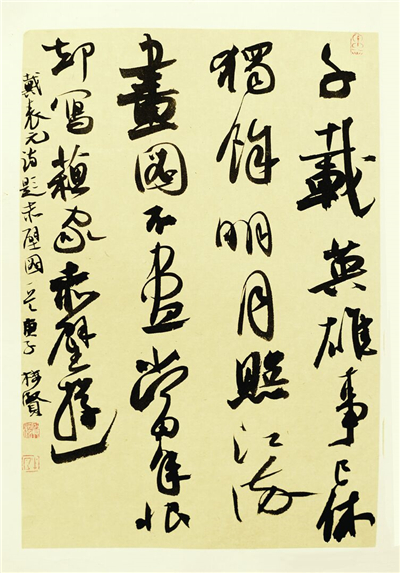 千載英雄事已休
獨餘明月照江流
畫圖不盡當年恨
却寫蘇家赤壁遊
戴表元詩題赤壁圖 庚子 賢